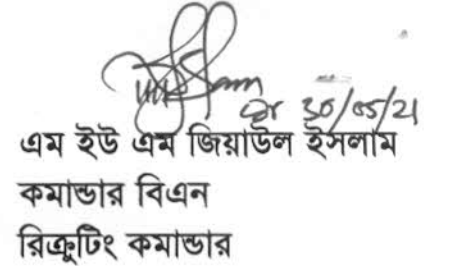 30/05/21
এম ইউ এম জিয়াউল ইসলাম
কমান্ডার বিএন
রিক্রুটিং কমান্ডার